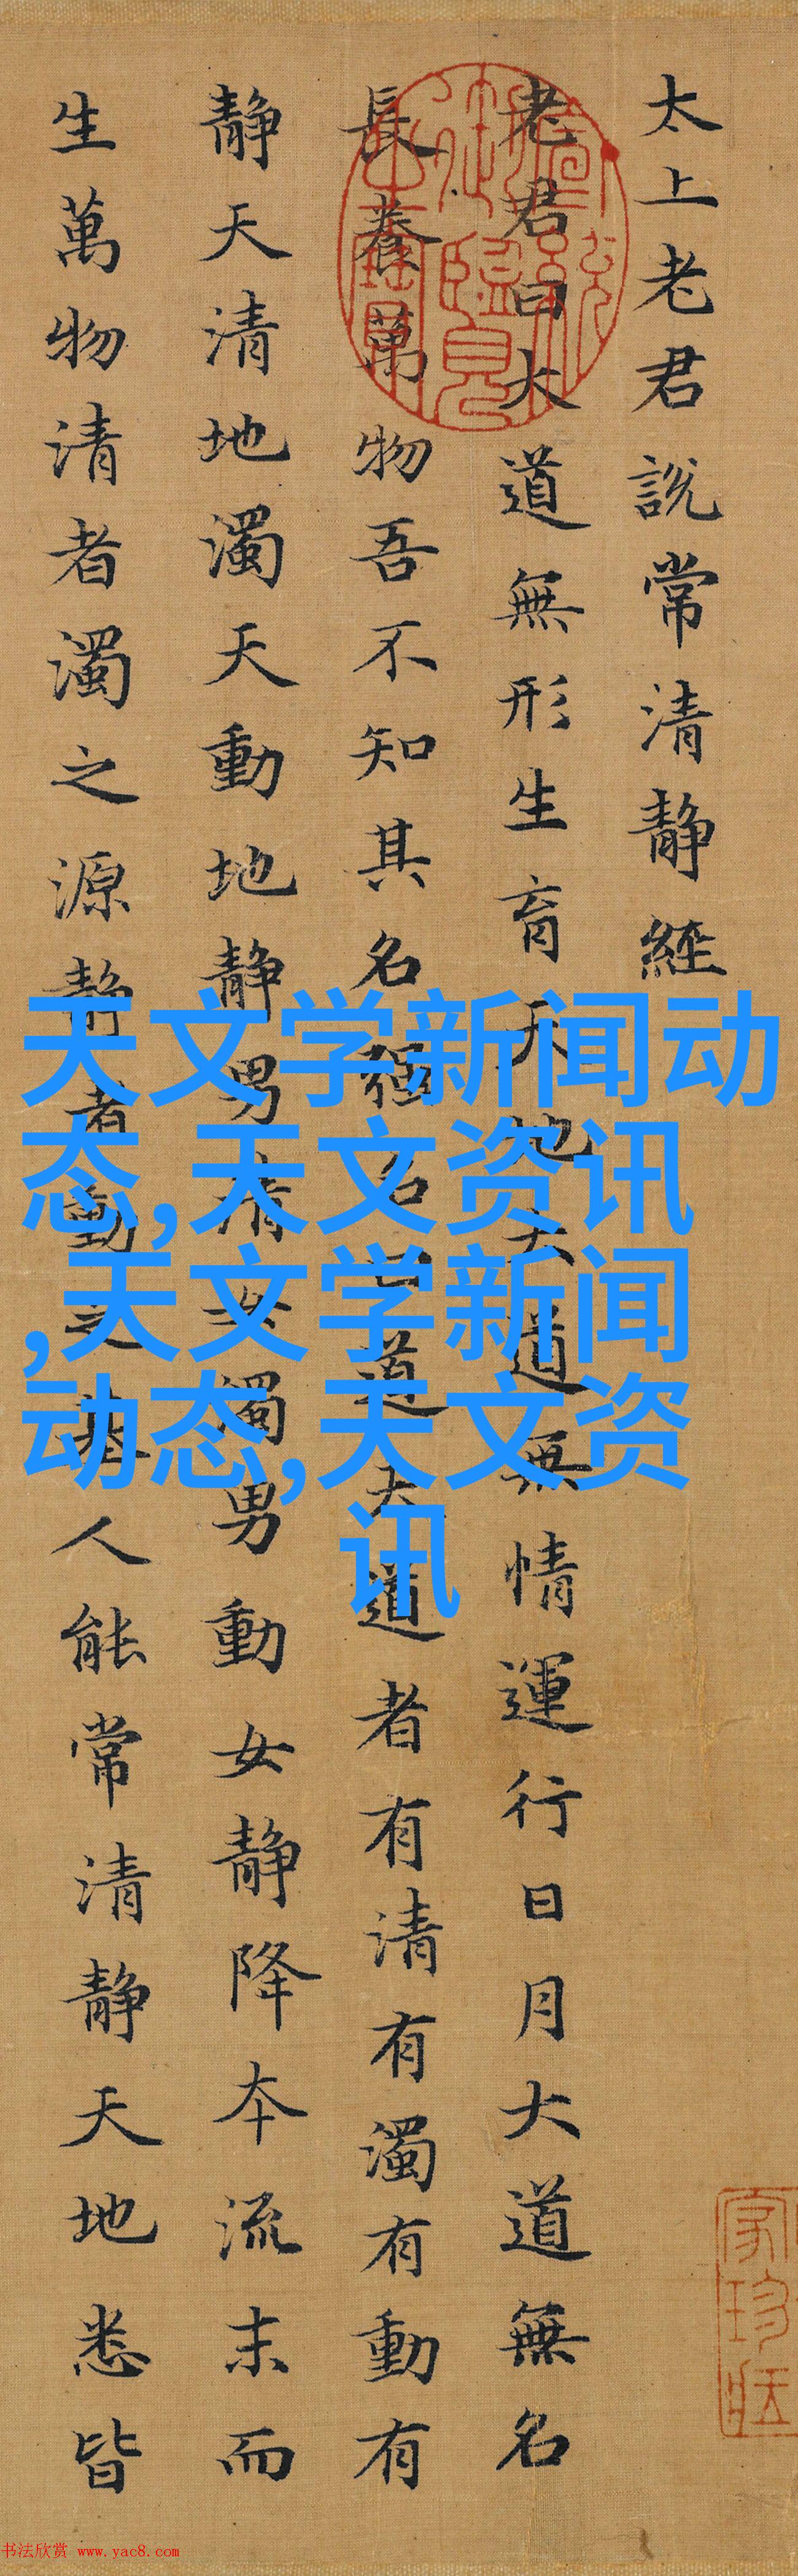 太上老君說常清靜經
老君曰大道無形生育天地大道無情運行日月大道無名
長養萬物吾不知其名强名曰道夫道者有清有濁有動有
靜天清地濁天動地靜男清女濁男動女靜降本流末而
生萬物清者濁之源靜者動之基人能常清靜天地悉皆
天文学新闻动
态,天文资讯
,天文学新闻
动态,天文资
讯
家珍
书法欣赏 www.yac8.com